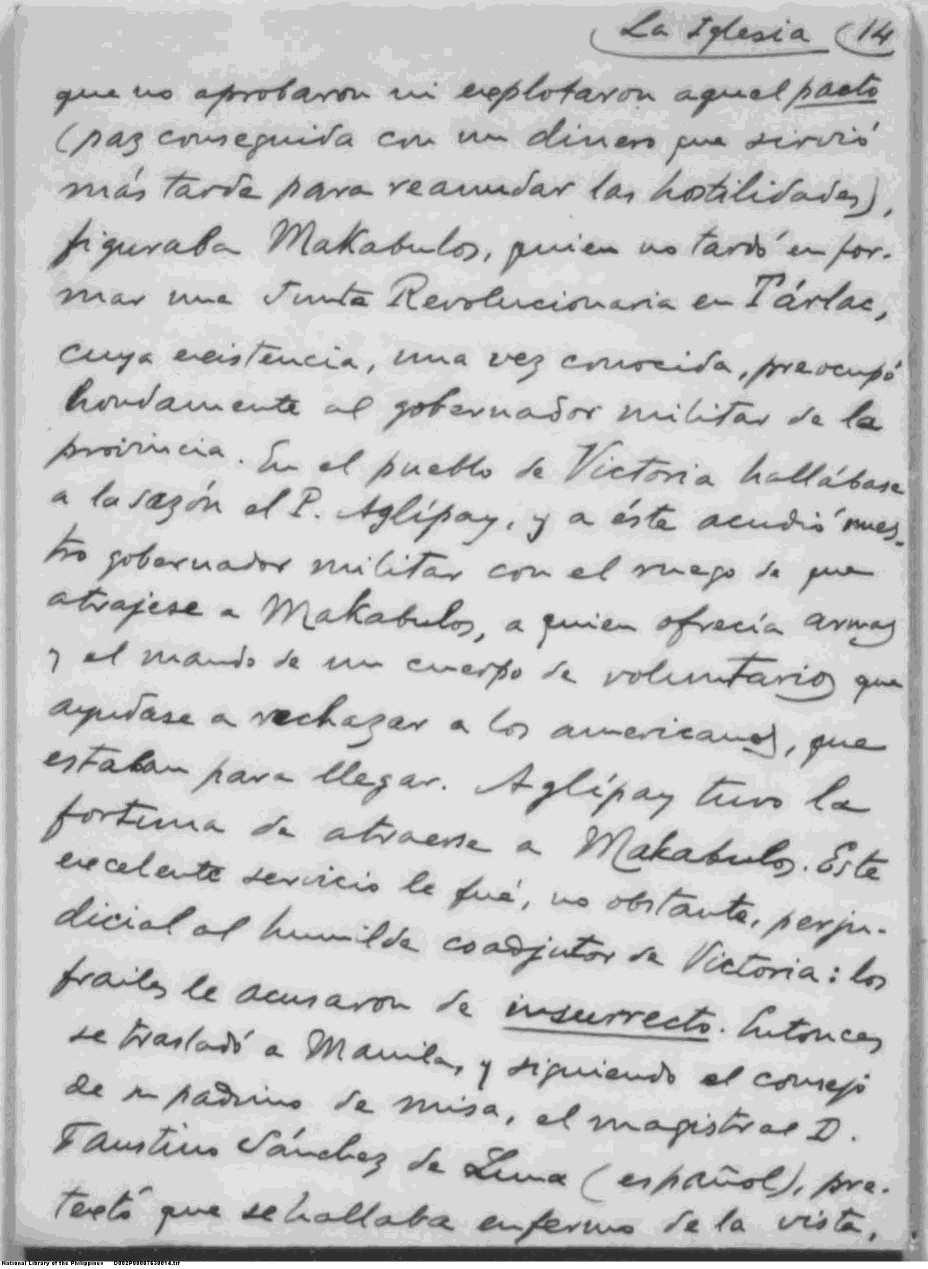 La Iglesia (14
que no aprobaron ni explotaron aquel pacto
(paz conseguida con un dinero que sirvió
más tarde para reanudar las hostilidades),
figuraba Makabulos, quien no tardó en for-
mar una Junta Revolucionaria en Tárlac,
cuya existencia, una vez conocida, preocupó
hondamente al gobernador militar de la
provincia. En el pueblo de Victoria hallábase
a la sazón el P. Aglípay, y a éste acudió nues-
tro gobernador militar con el ruego de que
atrajese a Makabulos, a quien ofrecía armas
y el mando de un cuerpo de voluntarios que
ayudase a rechazar a los americanos, que
estaban para llegar. Aglípay tuvo la
fortuna de atraerse a Makabulos. Este
excelente servicio le fué, no obstante, perju-
dicial al humilde coadjutor de Victoria: los
frailes le acusaron de insurrecto. Entonces
se trasladó a Manila, y siguiendo el consejo
de su padrino de misa, el magistral D.
Faustino Sánchez de Luna (español), pre-
textó que se hallaba enfermo de la vista,
National Library of the Philippines D002P00007630014.tif